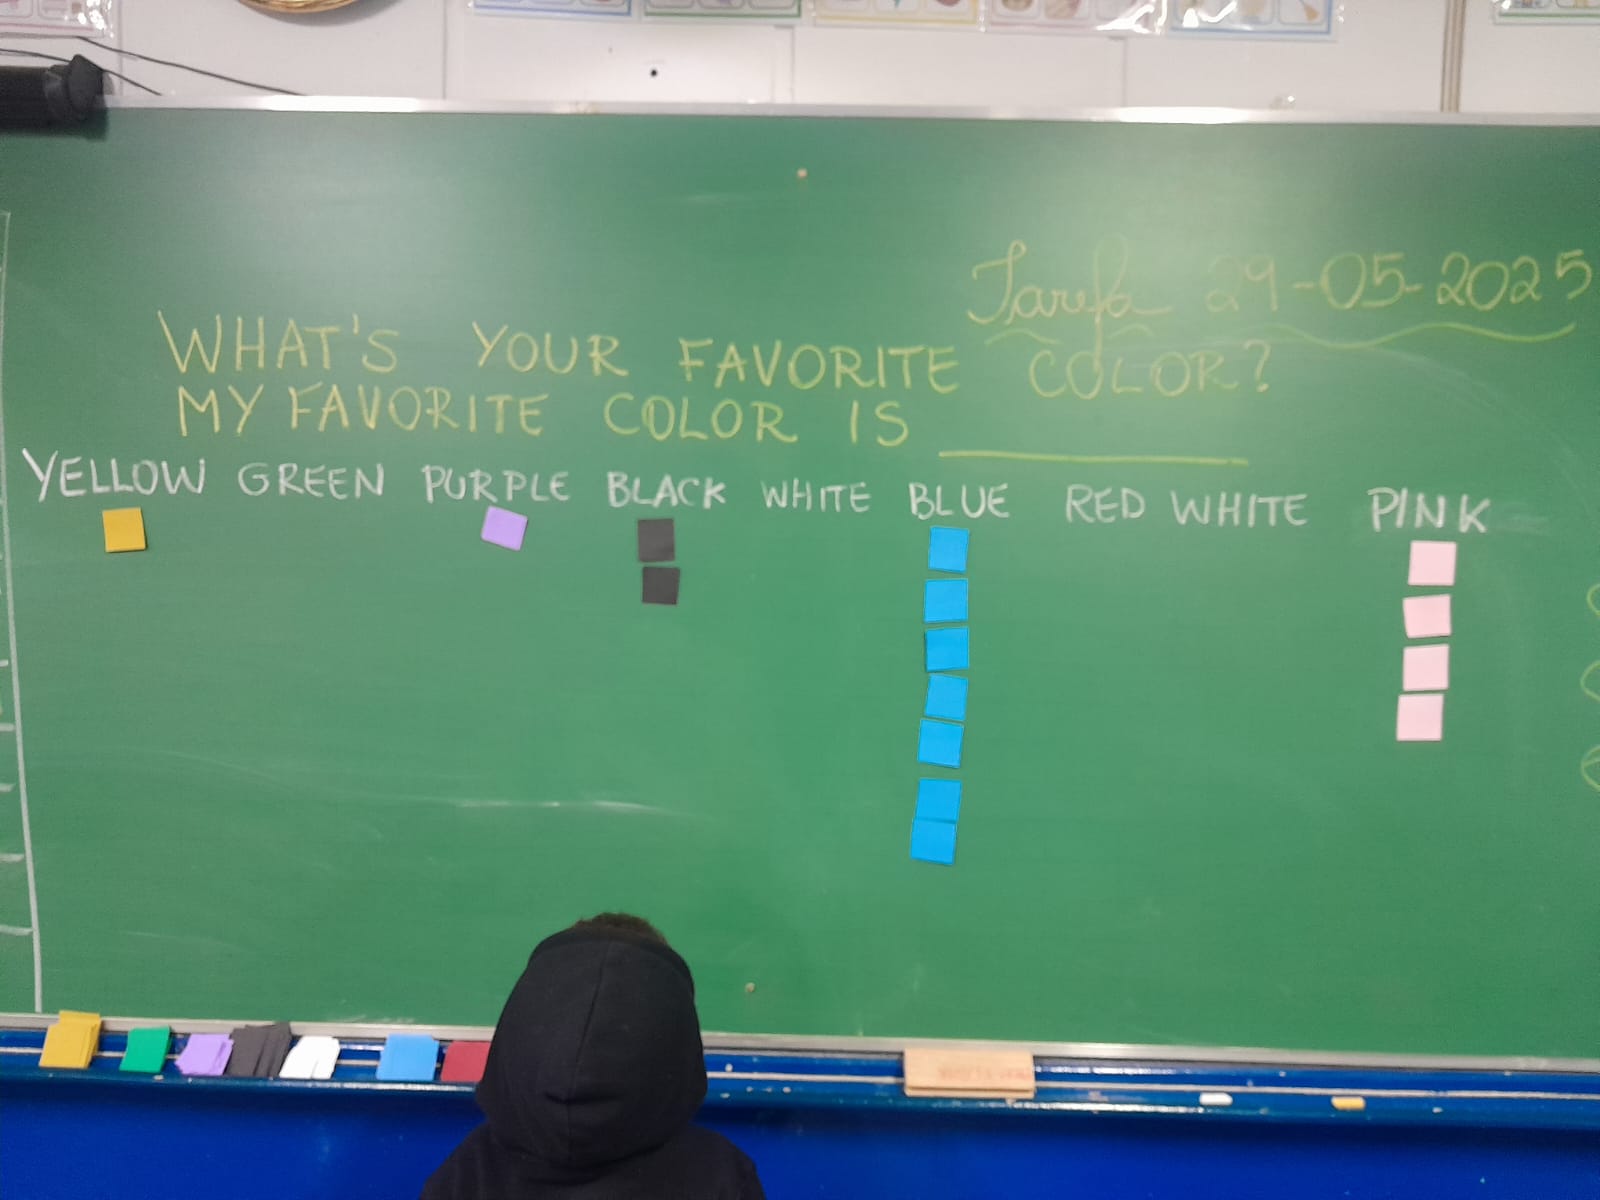 Tarefa 29-05-2025
WHAT'S YOUR FAVORITE COLOR?
MY FAVORITE COLOR IS ___________
YELLOW GREEN PURPLE BLACK WHITE BLUE RED WHITE PINK